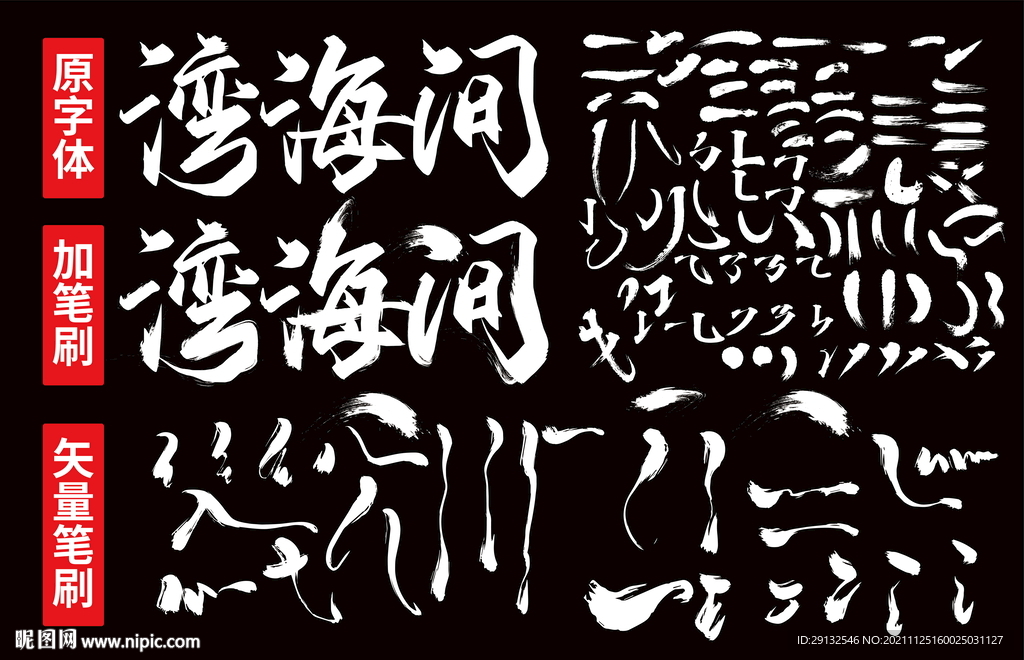 原字体
湾海间
加笔刷
湾海间
矢量笔刷
昵图网 www.nipic.com
ID:29132546 NO:20211125160025031127